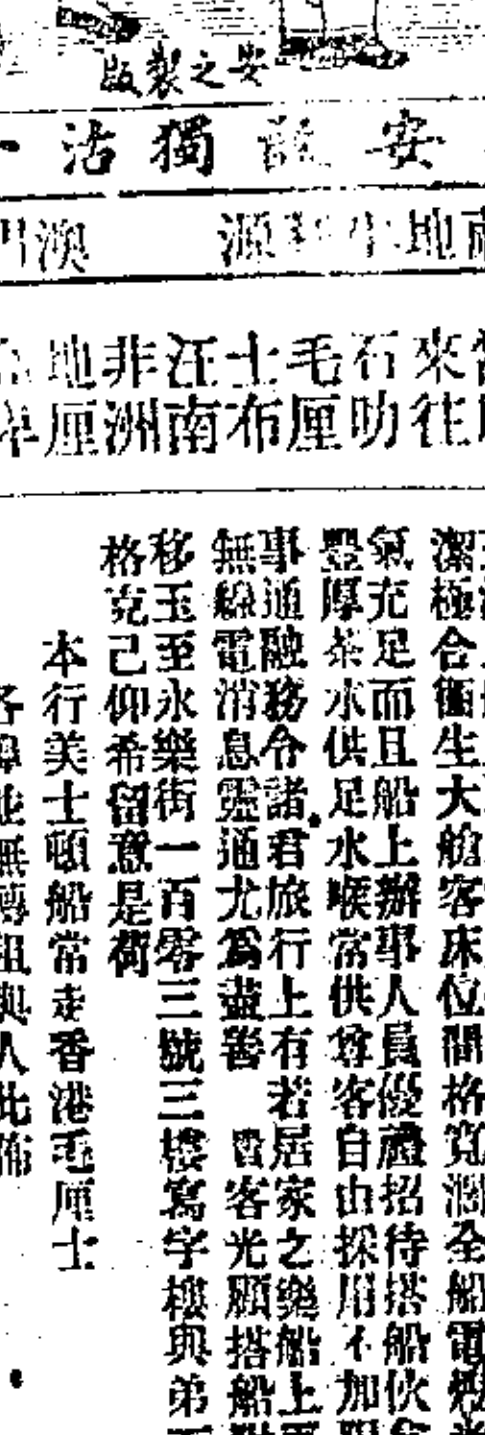 安之製版
安 獨沽一
南地 源 澳門
來往
石叻
毛厘
士布
汪南
非洲
地厘
潔極合衛生大艙客床位間格寬濶全船電
氣充足而且船上辦事人員優禮招待搭船伙
豐厚茶水供足水喉常供尊客自由採用不加限
事通融務令諸君旅行上有若居家之樂船上
無線電消息靈通尤爲盡善 貴客光顧搭船
移玉至永樂街一百零三號三樓寫字樓與弟
格克己仰希留意是荷
本行美士頓船常走香港毛厘士
各埠並無轉租與人此佈